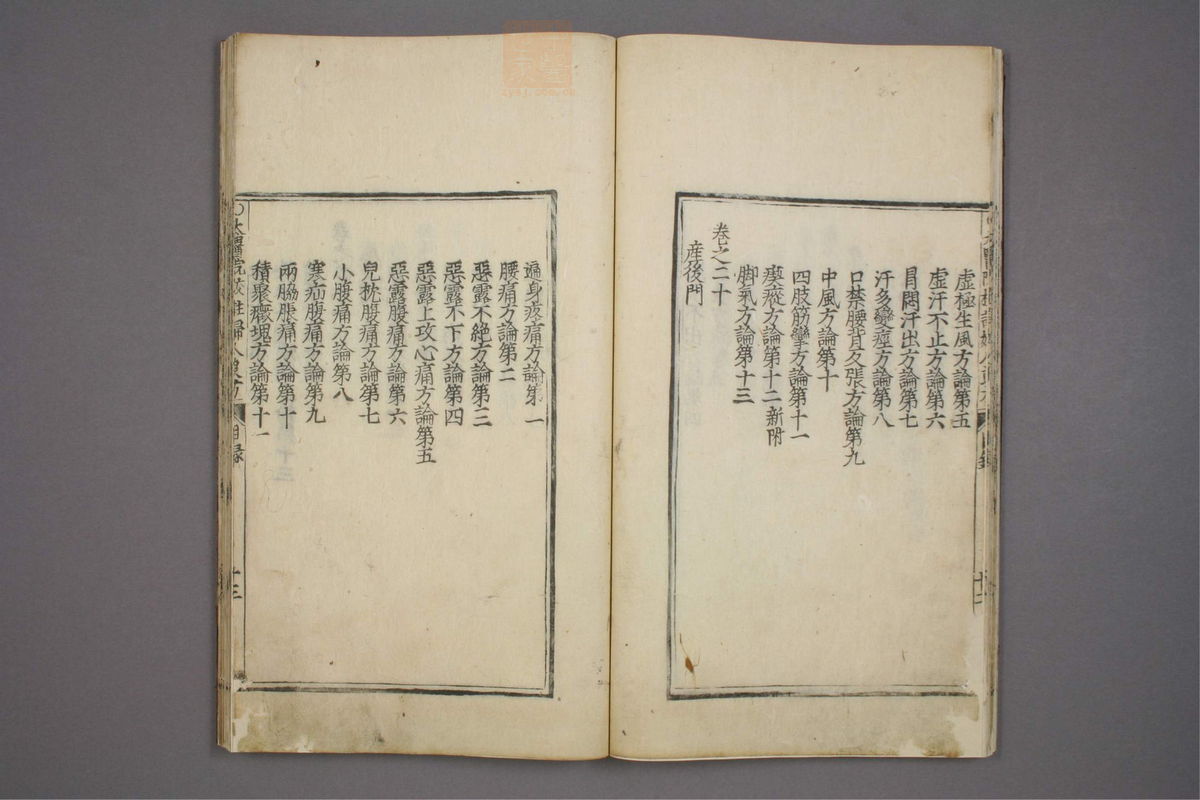 虛極生風方論第五
虛汗不止方論第六
冒悶汗出方論第七
汗多變痙方論第八
口禁腰背反張方論第九
中風方論第十
四肢筋攣方論第十一
瘈瘲方論第十二 新附
脚氣方論第十三
卷之二十
産後門
遍身疼痛方論第一
腰痛方論第二
惡露不絶方論第三
惡露不下方論第四
惡露上攻心痛方論第五
惡露腹痛方論第六
兒枕腹痛方論第七
小腹痛方論第八
寒疝腹痛方論第九
兩脇脹痛方論第十
積聚癥塊方論第十一
太醫院校註婦人良方 目録 十三